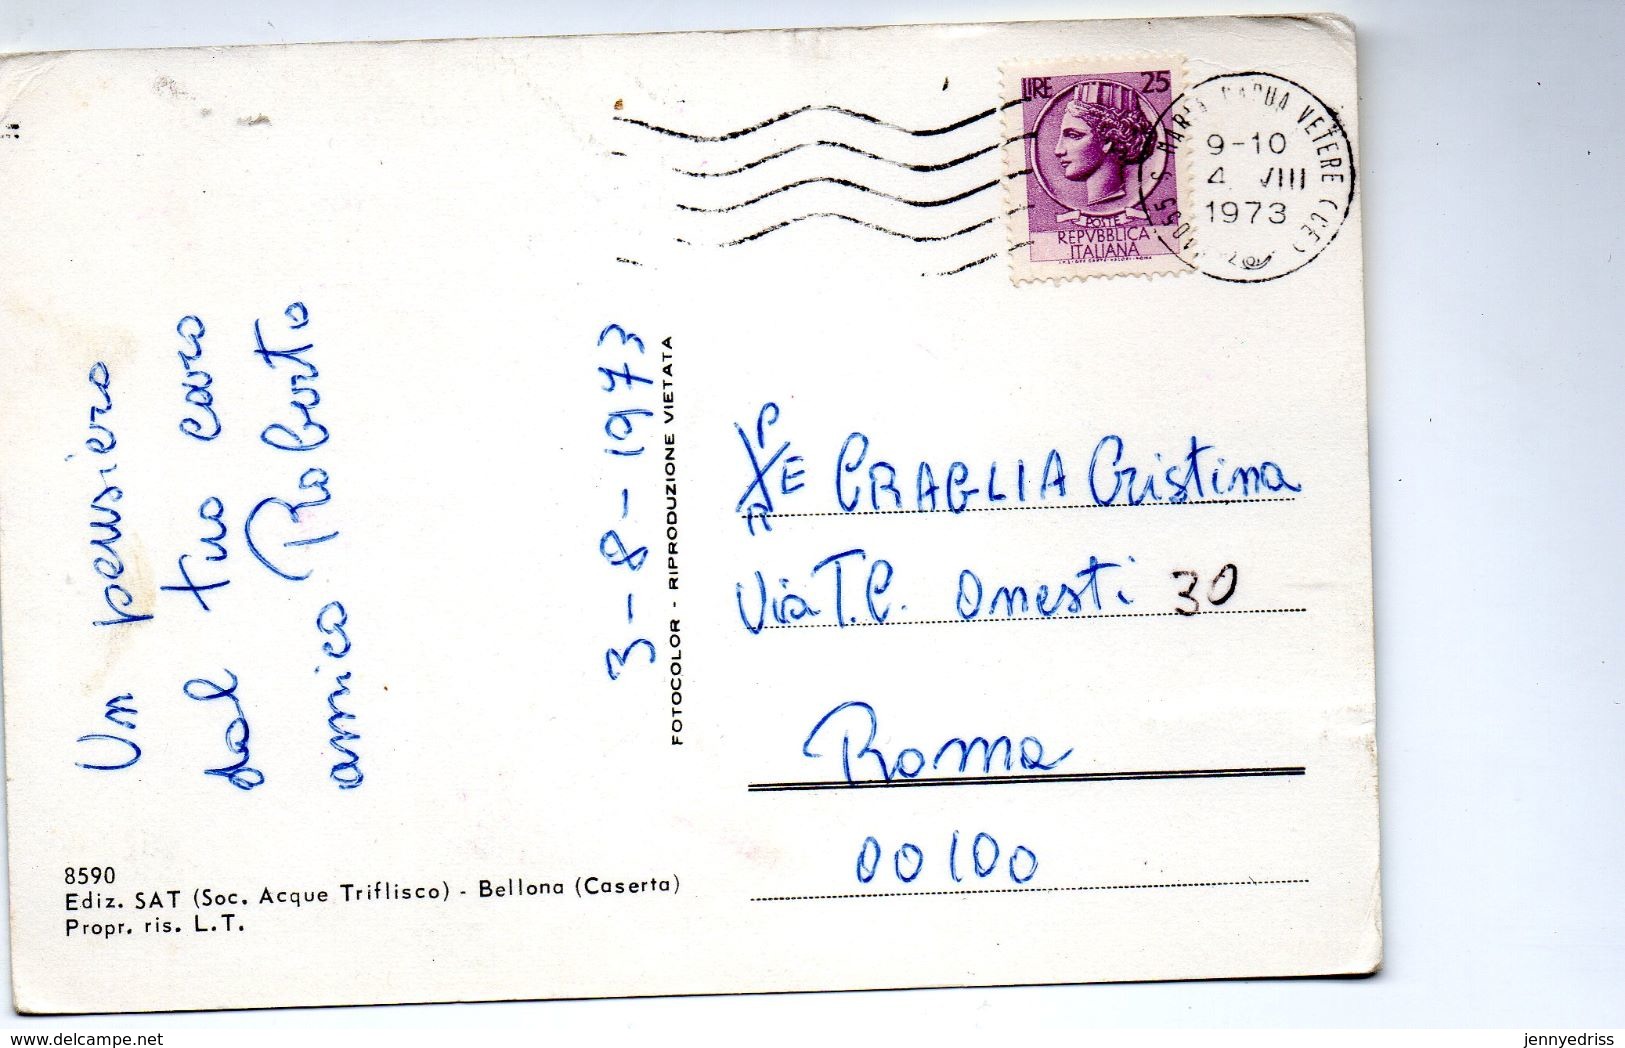 LIRE 25
POSTE
REPVBBLICA
ITALIANA
S. MARIA CAPUA VETERE (CE)
9-10
4 VIII
1973
Un pensiero
dal tuo caro
amico Roberto
3-8-1973
FOTOCOLOR - RIPRODUZIONE VIETATA
CRAGLIA Cristina
Via T.C. Onesti 30
Roma
00100
8590
Ediz. SAT (Soc. Acque Triflisco) - Bellona (Caserta)
Propr. ris. L.T.
delcampe.net
jennyedriss